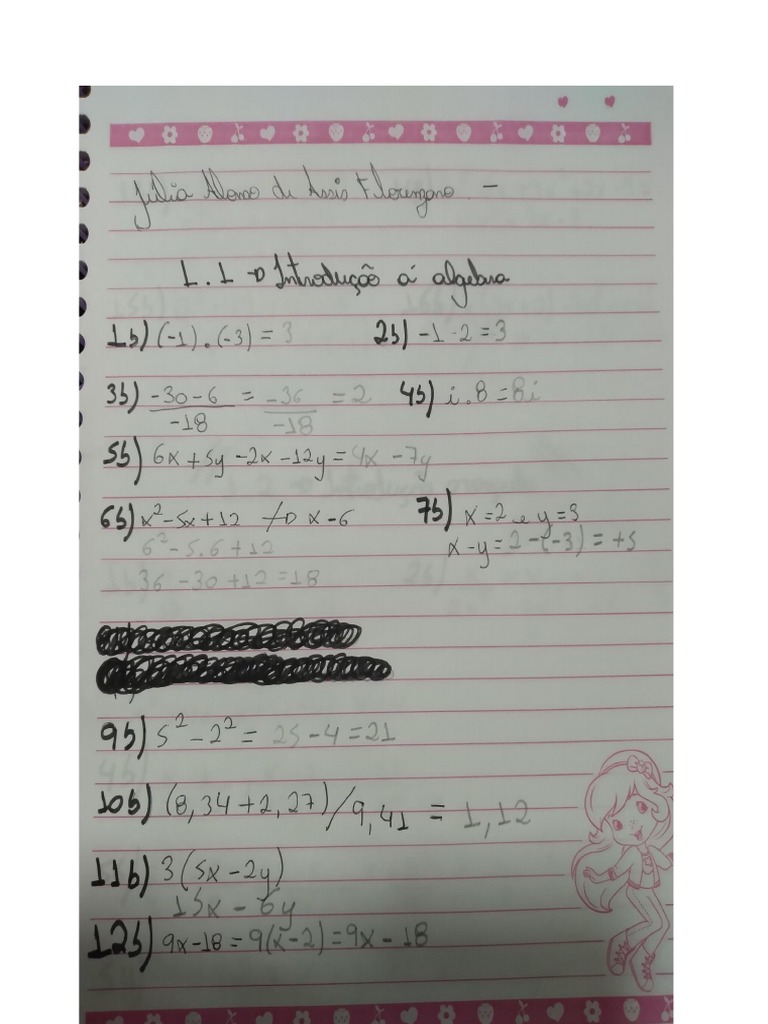 Júlia de Assis
1.1 → Introdução á algebra
1b) (-1).(-3) = 3 2b) -1-2 = 3
3b) -30-6/-18 = -36/-18 = 2 4b) i.8 = 8i
5b) 6x+5y-2x-12y = 4x-7y
6b) x²-5x+12 /→ x-6 7b) x=2 e y=3
6²-5.6+12 x-y = 2-(-3) = +5
36-30+12=18
9b) 5²-2² = 25-4=21
10b) (8,34+2,27)/9,41 = 1,12
11b) 3(5x-2y)
15x-6y
12b) 9x-18 = 9(x-2) = 9x-18